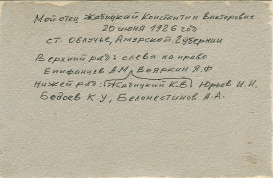 Мой отец Жабицкий Константин Викторович
20 июня 1926 год
ст. Облучье, Амурской Губернии
Верхний ряд: слева на право
Епифанцев А.М, Бояркин Я.Ф
Нижей ряд: Жабицкий К.В Юрьев И.И.
Бодоев К.У, Беломестинов А.А.